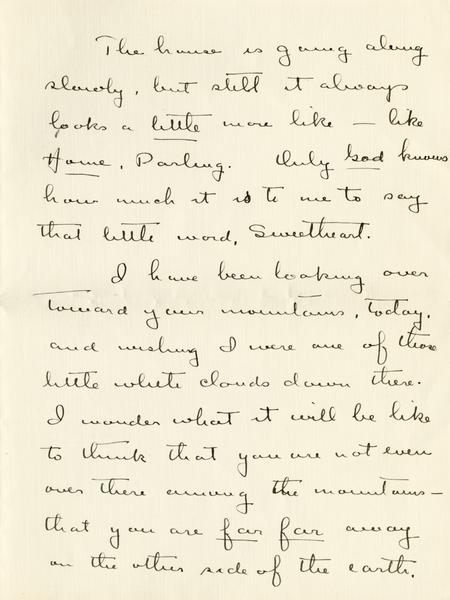 The house is going along
slowly, but still it always
looks a little more like — like
Home, Darling. Only God knows
how much it is to me to say
that little word, Sweetheart.
I have been looking over
toward your mountains, today,
and wishing I were one of those
little white clouds down there.
I wonder what it will be like
to think that you are not even
over there among the mountains —
that you are far far away
on the other side of the earth.